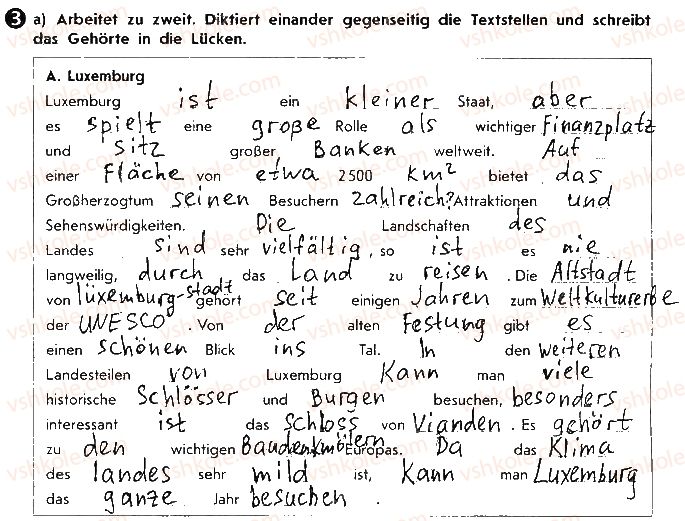 3 a) Arbeitet zu zweit. Diktiert einander gegenseitig die Textstellen und schreibt
das Gehörte in die Lücken.
A. Luxemburg
Luxemburg ist ein kleiner Staat, aber
es spielt eine große Rolle als wichtiger Finanzplatz
und Sitz großer Banken weltweit. Auf
einer Fläche von etwa 2500 km² bietet das
Großherzogtum seinen Besuchern zahlreich? Attraktionen und
Sehenswürdigkeiten. Die Landschaften des
Landes sind sehr vielfältig, so ist es nie
langweilig, durch das Land zu reisen. Die Altstadt
von lüxemburg-stadt gehört seit einigen Jahren zum Weltkulturerbe
der UNESCO. Von der alten Festung gibt es
einen schönen Blick ins Tal. In den weiteren
Landesteilen von Luxemburg Kann man viele
historische Schlösser und Burgen besuchen, besonders
interessant ist das Schloss von Vianden. Es gehört
zu den wichtigen Baudenkmälern Europas. Da das Klima
des landes sehr mild ist, Kann man Luxemburg
das ganze Jahr besuchen.